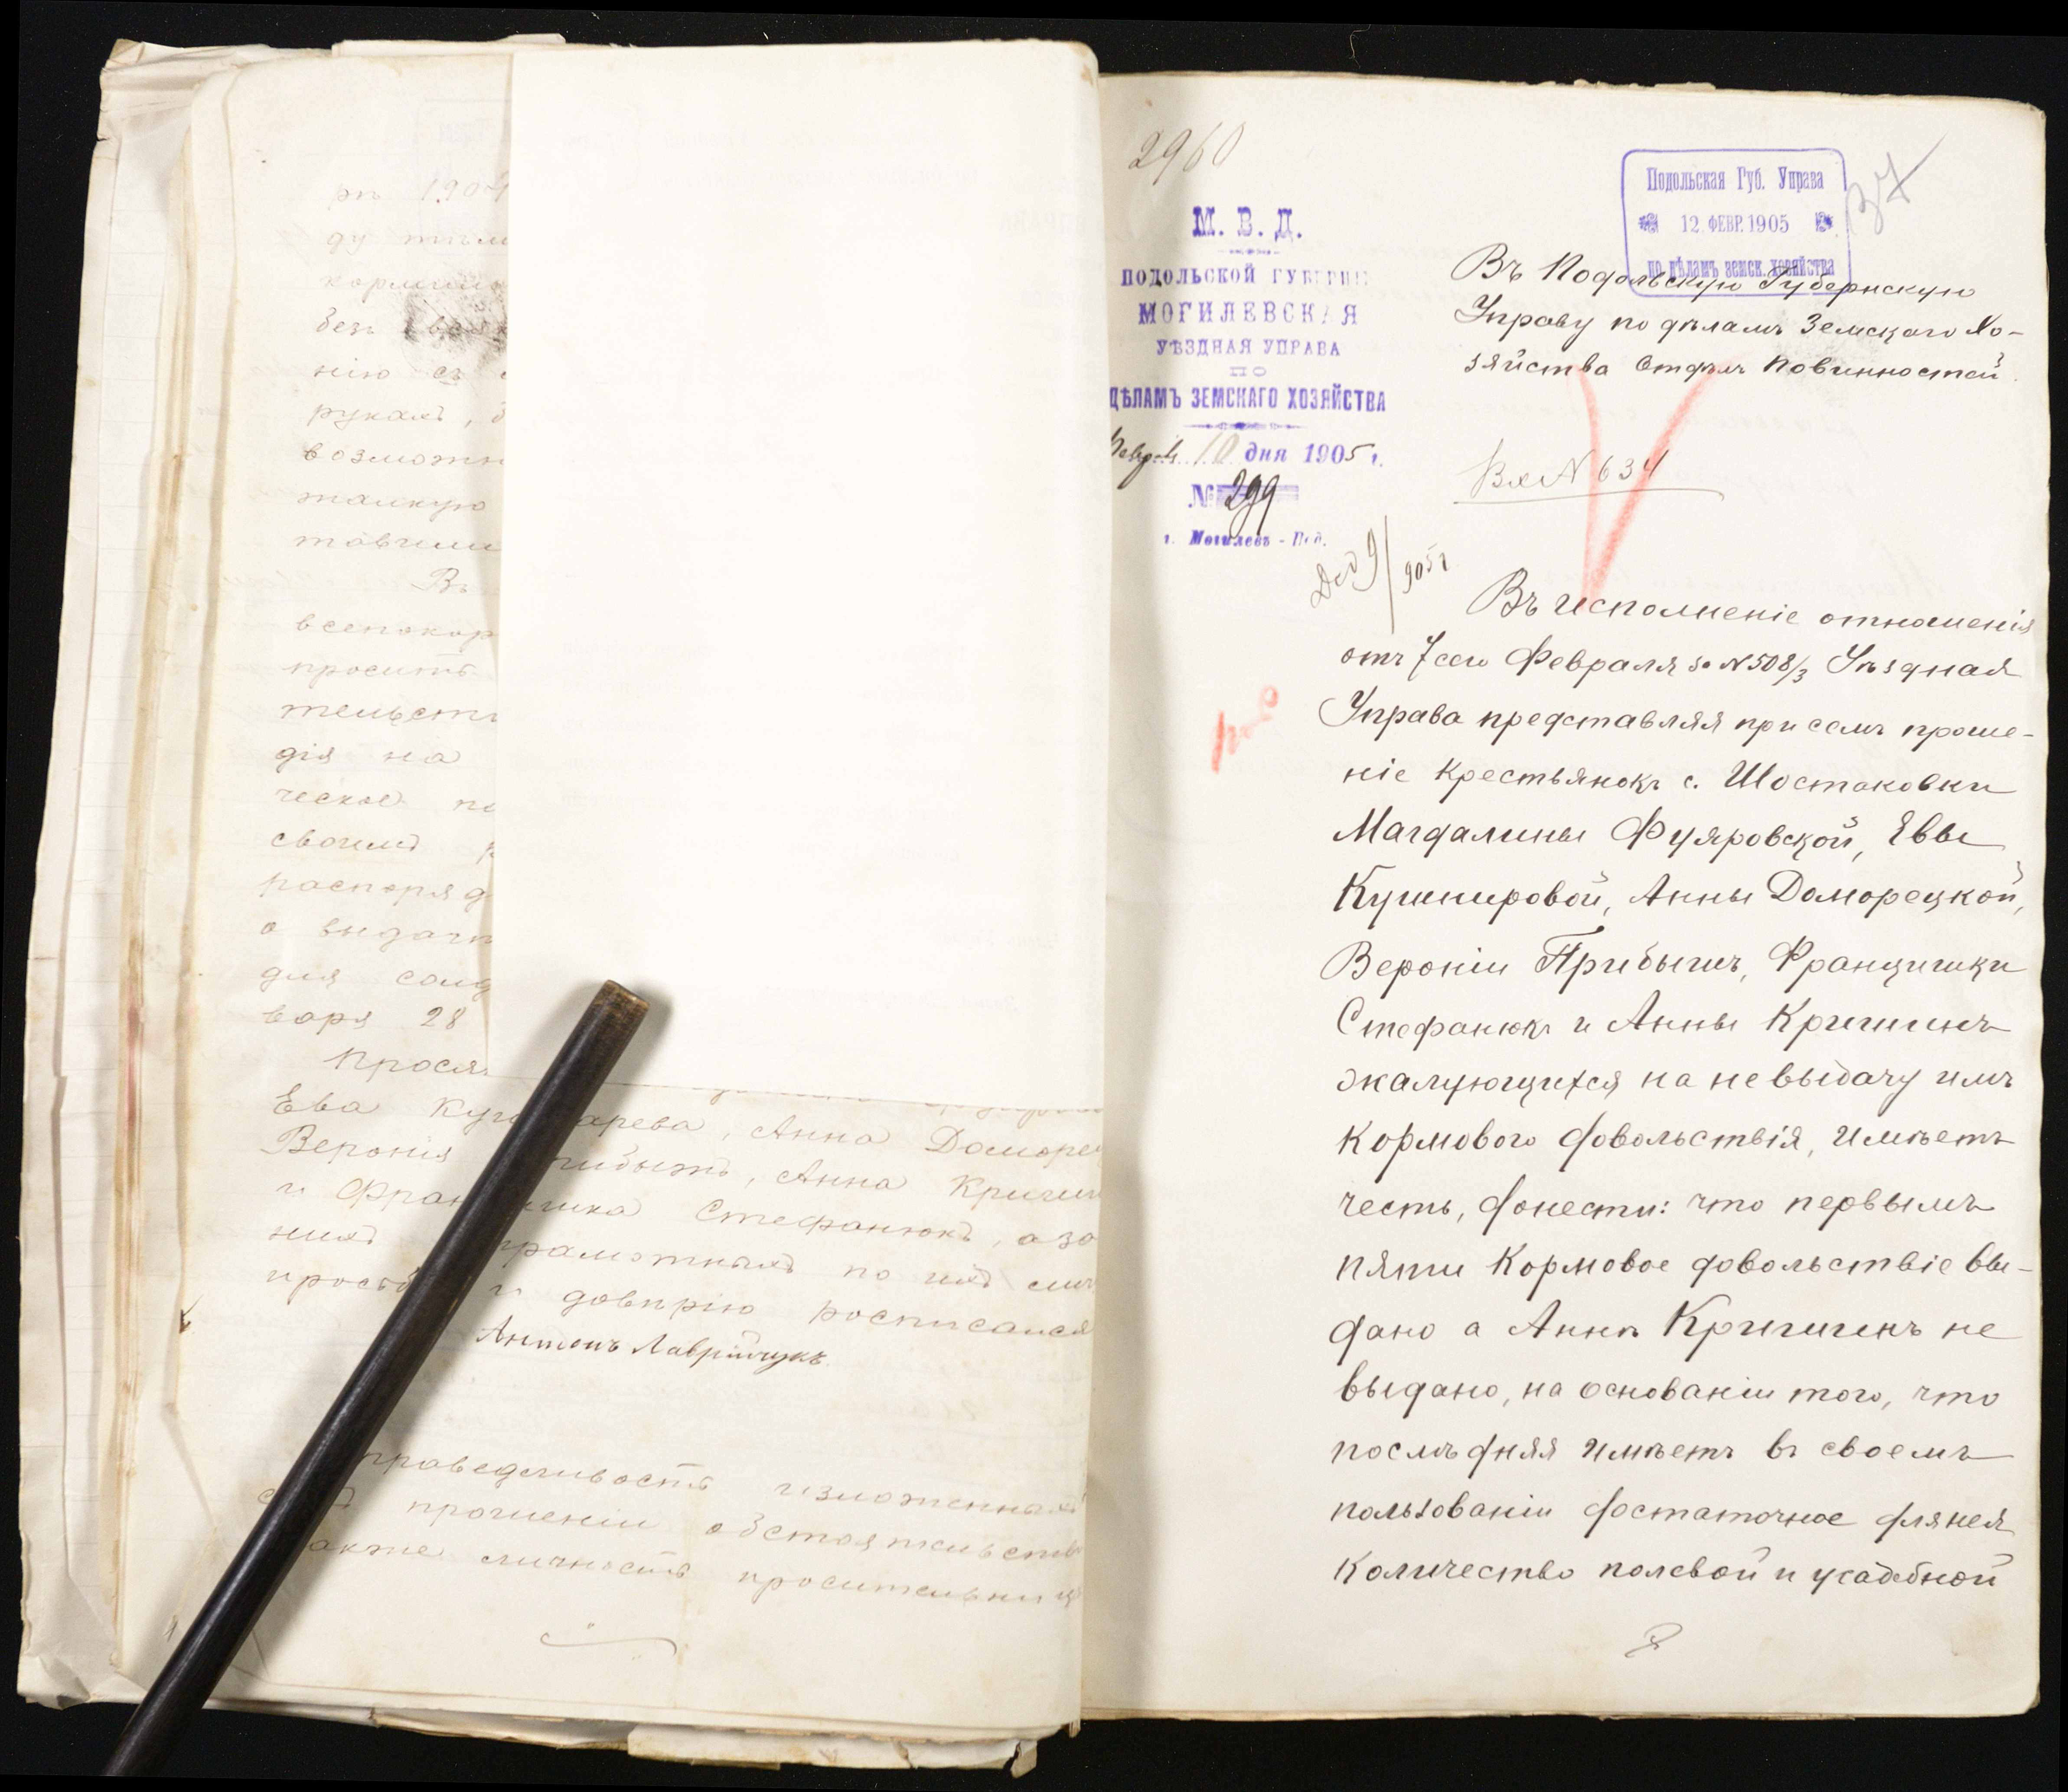 1904
ду тѣм
кормил
без
нію съ
рукахъ, б
возможн
такую
тавши
Въ
всепокор
просить
тельст
дія на
ческое по
своимъ
распоряд
о выдач
для солд
варя 28
Прося
Ева Куш арева, Анна Доморец
Веронія рибышъ, Анна Кришин
и Фран ишка Стефанюкъ, а за
нихъ грамотныхъ по ихъ лич
просьб и довѣрію росписался
Антонъ Лаврійчукъ
праведливость изложенныхъ
прошеніи обстоятельств
акже личность просительниц
2960
М. В. Д.
ПОДОЛЬСКОЙ ГУБЕРНІИ
МОГИЛЕВСКАЯ
УѢЗДНАЯ УПРАВА
ПО
ДѢЛАМЪ ЗЕМСКАГО ХОЗЯЙСТВА
Февраля 10 дня 1905 г.
№ 299
г. Могилевъ - Под.
Подольская Губ. Управа
12. ФЕВР. 1905
по дѣламъ земск. хозяйства
37
Въ Подольскую Губернскую
Управу по дѣламъ Земскаго Хо-
зяйства Отдѣлъ Повинностей.
Вх № 634
9/905 г
Въ исполненіе отношенія
отъ 7 сего Февраля за № 508/3 Уѣздная
Управа представляя при семъ проше-
ніе Крестьянокъ с. Шостаковки
Магдалины Фуяровской, Евы
Кушнировой, Анны Доморецкой,
Вероніи Прибышъ, Францишки
Стефанюкъ и Анны Кришинъ
жалующихся на невыдачу имъ
Кормового довольствія, имѣетъ
честь, донести: что первымъ
пяти Кормовое довольствіе вы-
дано а Аннѣ Кришинъ не
выдано, на основаніи того, что
послѣдняя имѣетъ въ своемъ
пользованіи достаточное для нея
Количество полевой и усадебной